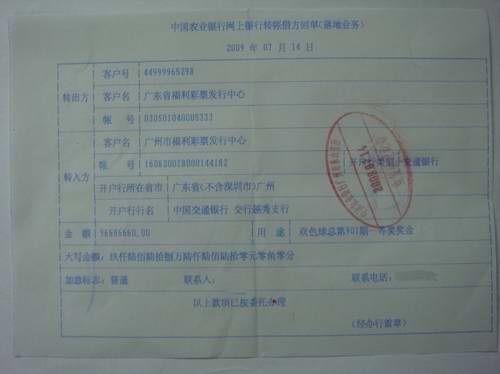 中国农业银行网上银行转账借方回单(落地业务)
2009 年 07 月 14 日
转出方
客户号 44999965298
客户名 广东省福利彩票发行中心
帐 号 030501040005333
转入方
客户名 广州市福利彩票发行中心
帐 号 160630028000144182 开户行类别 交通银行
开户行所在省市 广东省(不含深圳市)广州
开户行行名 中国交通银行 交行越秀支行
金 额 96686660.00 用 途 双色球总第901期一等奖奖金
大写金额: 玖仟陆佰陆拾捌万陆仟陆佰陆拾零元零角零分
加急标志: 普通 联系人: 联系电话:
以上款项已按委托办理
(经办行盖章)
2009.07.14